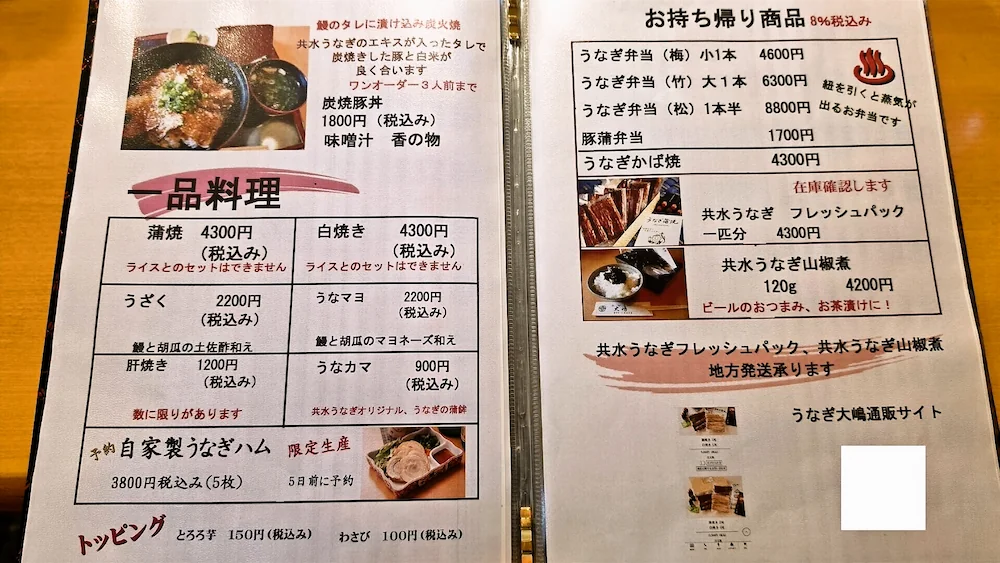 鰻のタレに漬け込み炭火焼
共水うなぎのエキスが入ったタレで
炭焼きした豚と白米が
良く合います
ワンオーダー3人前まで
炭焼豚丼
1800円（税込み）
味噌汁　香の物
一品料理
蒲焼　4300円
（税込み）
ライスとのセットはできません
白焼き　4300円
（税込み）
ライスとのセットはできません
うざく　2200円
（税込み）
鰻と胡瓜の土佐酢和え
うなマヨ　2200円
（税込み）
鰻と胡瓜のマヨネーズ和え
肝焼き　1200円
（税込み）
数に限りがあります
うなカマ　900円
（税込み）
共水うなぎオリジナル、うなぎの蒲鉾
予約 自家製うなぎハム　限定生産
3800円税込み(5枚)　5日前に予約
トッピング　とろろ芋　150円(税込み)　わさび　100円(税込み)
お持ち帰り商品 8%税込み
うなぎ弁当（梅）小1本　4600円
うなぎ弁当（竹）大1本　6300円
うなぎ弁当（松）1本半　8800円
紐を引くと蒸気が
出るお弁当です
豚蒲弁当　1700円
うなぎかば焼　4300円
在庫確認します
共水うなぎ　フレッシュパック
一匹分　4300円
共水うなぎ山椒煮
120g　4200円
ビールのおつまみ、お茶漬けに！
共水うなぎフレッシュパック、共水うなぎ山椒煮
地方発送承ります
うなぎ大嶋通販サイト